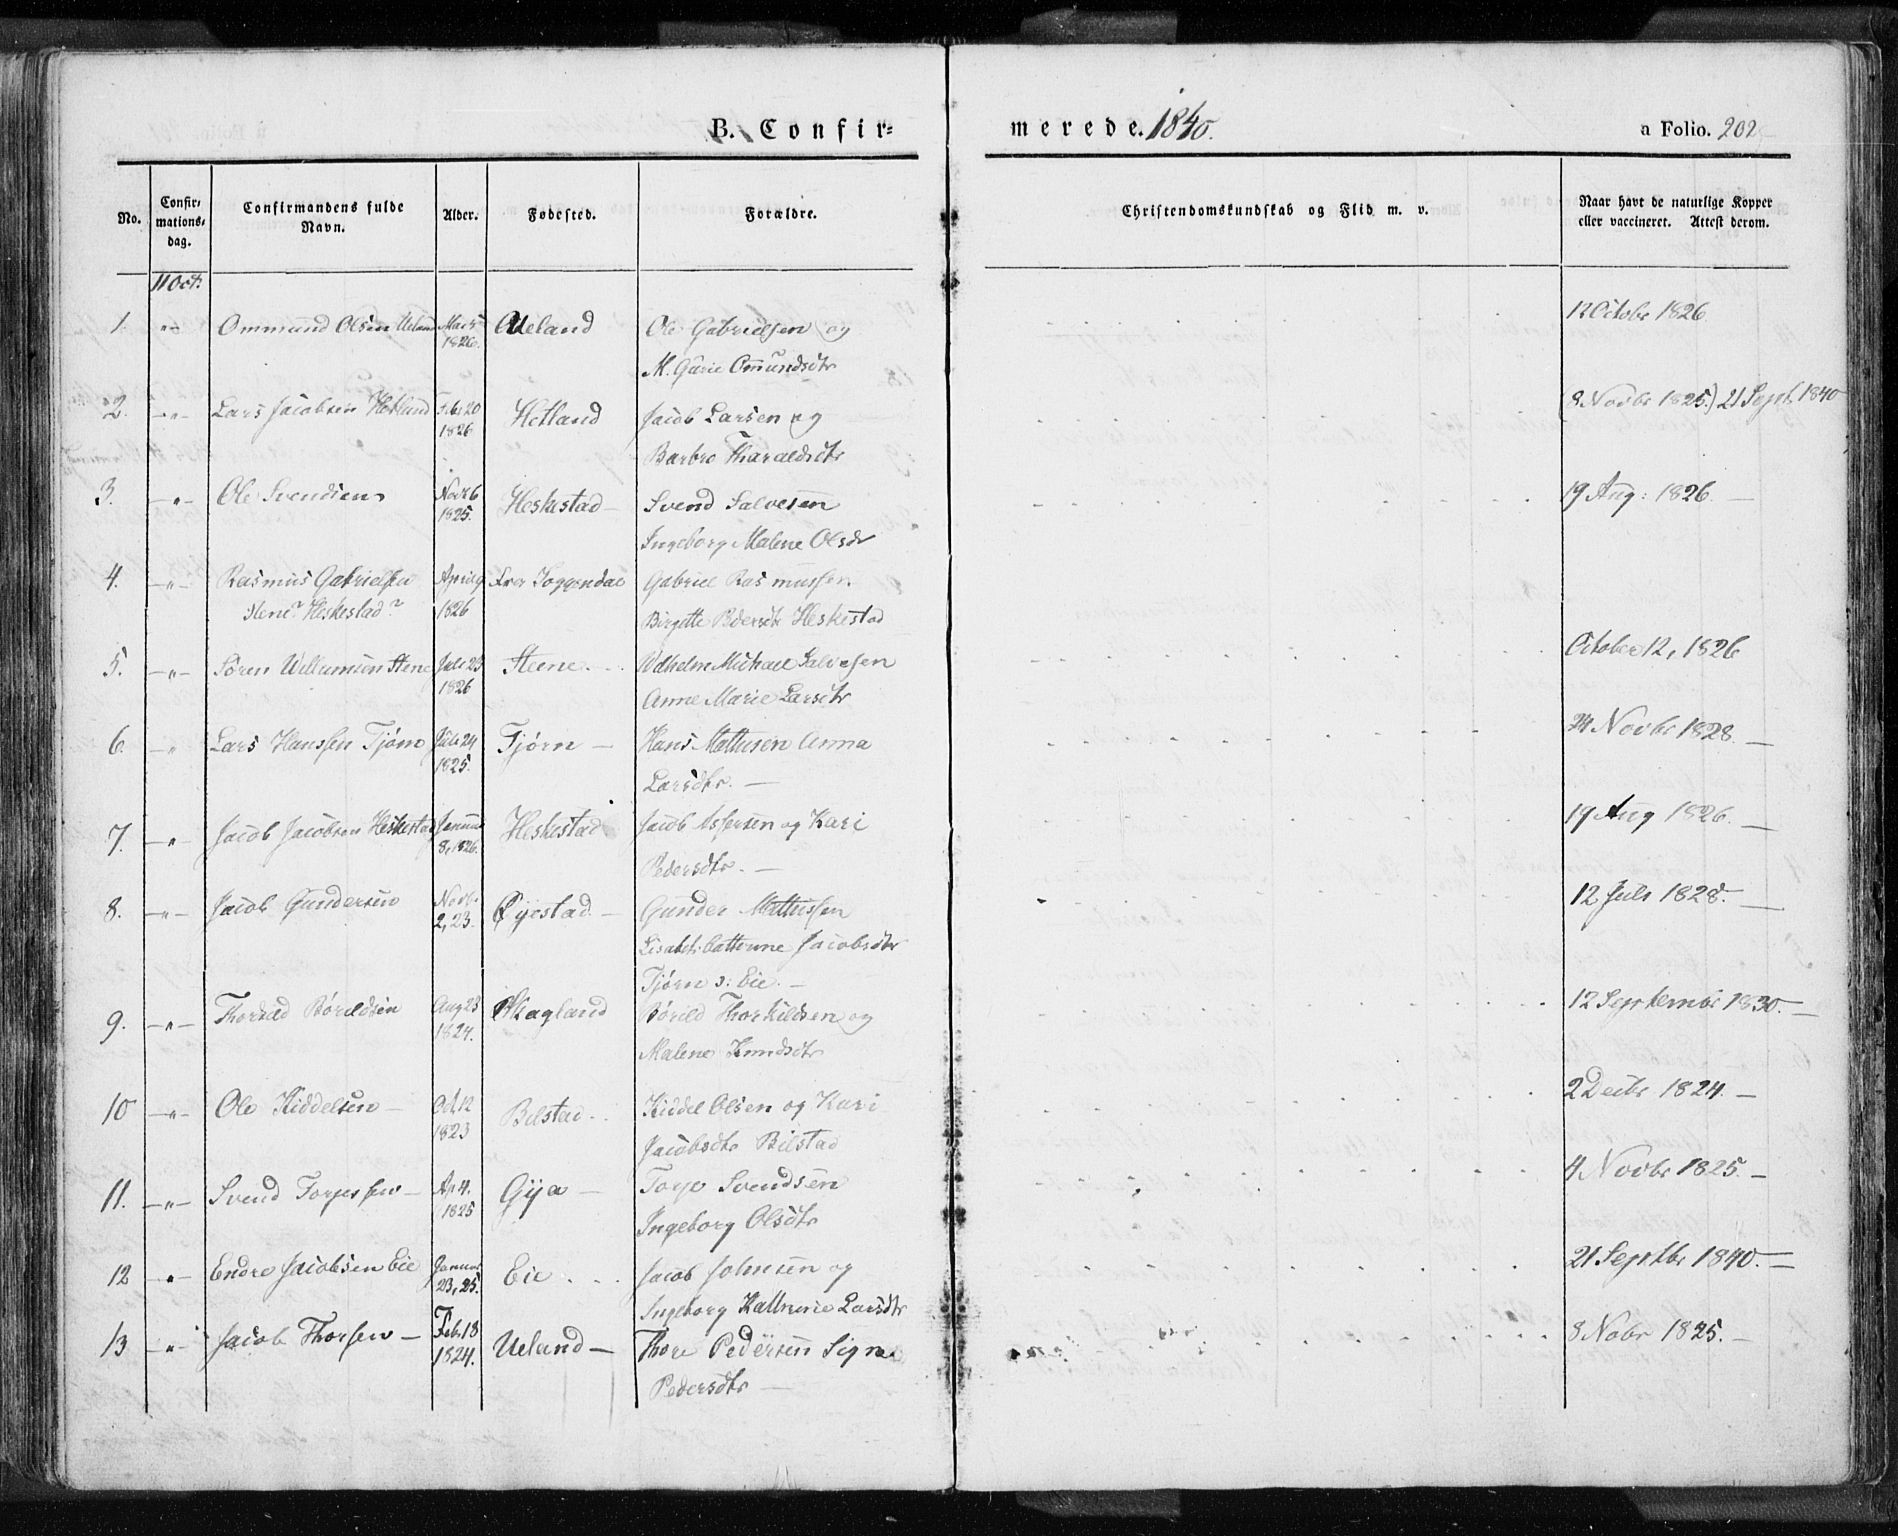 B. Confir=
merede. 1840.
a Folio. 202
No.
Confir=
mations=
dag.
Confirmandens fulde
Navn.
Alder.
Fødested.
Forældre.
Christendomskundskab og Flid m. v.
Naar havt de naturlige Kopper
eller vaccineret. Attest derom.
11 Oct:
1. -"- Ommund Olsen Ueland Mar 5 Ueland Ole Gabrielsen og 12 Octobr 1826
1826. M. Gurie Omundsdtr
2. -"- Lars Jacobsen Hetland Feb 20 Hetland Jacob Larsen og (8 Novbr 1825.) 21 Sept. 1840
1826 Barbro Tharaldsdtr
3. -"- Ole Svendsen Novb 6 Heskestad - Svend Salvesen 19 Aug: 1826. -
1825. Ingeborg Malene Olsdr
4. -"- Rasmus Gabrielsen April 9 Soggendal Gabriel Rasmussen
Stene? Heskestad? 1826 Birgitte Pedersdtr Heskestad
5. -"- Sören Willumsen Stene Juli 23 Steene. - Vilhelm Michael Salvesen October 12, 1826
1826 Anne Marie Larsdtr
6. " Lars Hanssen Tjørn Juli 24 Tjørn - Hans Mathisen Anna 24 Novbr 1828. -
1825. Larsdtr. -
7. -"- Jacob Jacobsen Heskestad Januar Heskestad Jacob Assersen og Kari 19 Aug 1826. -
8, 1826. Pedersdtr. -
8. -"- Jacob Gundersen Novb. Øyestad - Gunder Mathissen 12 Juli 1828. -
2, 23. Lisabet Cathrine Jacobsdtr
Tjørn s: Eie. -
9. -"- Børildsen Aug 23 Skagland Børild Thorkildsen og 12 Septembr 1830. -
1824. Malene Knudsdtr
10 -"- Ole Kiddelsen - Oct 12 Bilstad - Kiddel Olsen og Kari 2 Decbr 1824. -
1823 Jacobsdtr Bilstad
11. -"- Svend Torjessen - Ap 4. Gya - Torje Svendsen 4 Novbr 1825. -
1825 Ingeborg Olsdtr
12 -"- Endre Jacobsen Eie Januar Eie . . . Jacob Johnsen og 21 Septbr 1840. -
23, 25. Ingeborg Kathrine Larsdtr
13 -"- Jacob Thorsen - Feb. 18 Ueland - Thore Pedersen Signe 8 Nobr 1825. -
1824. Pedersdtr -